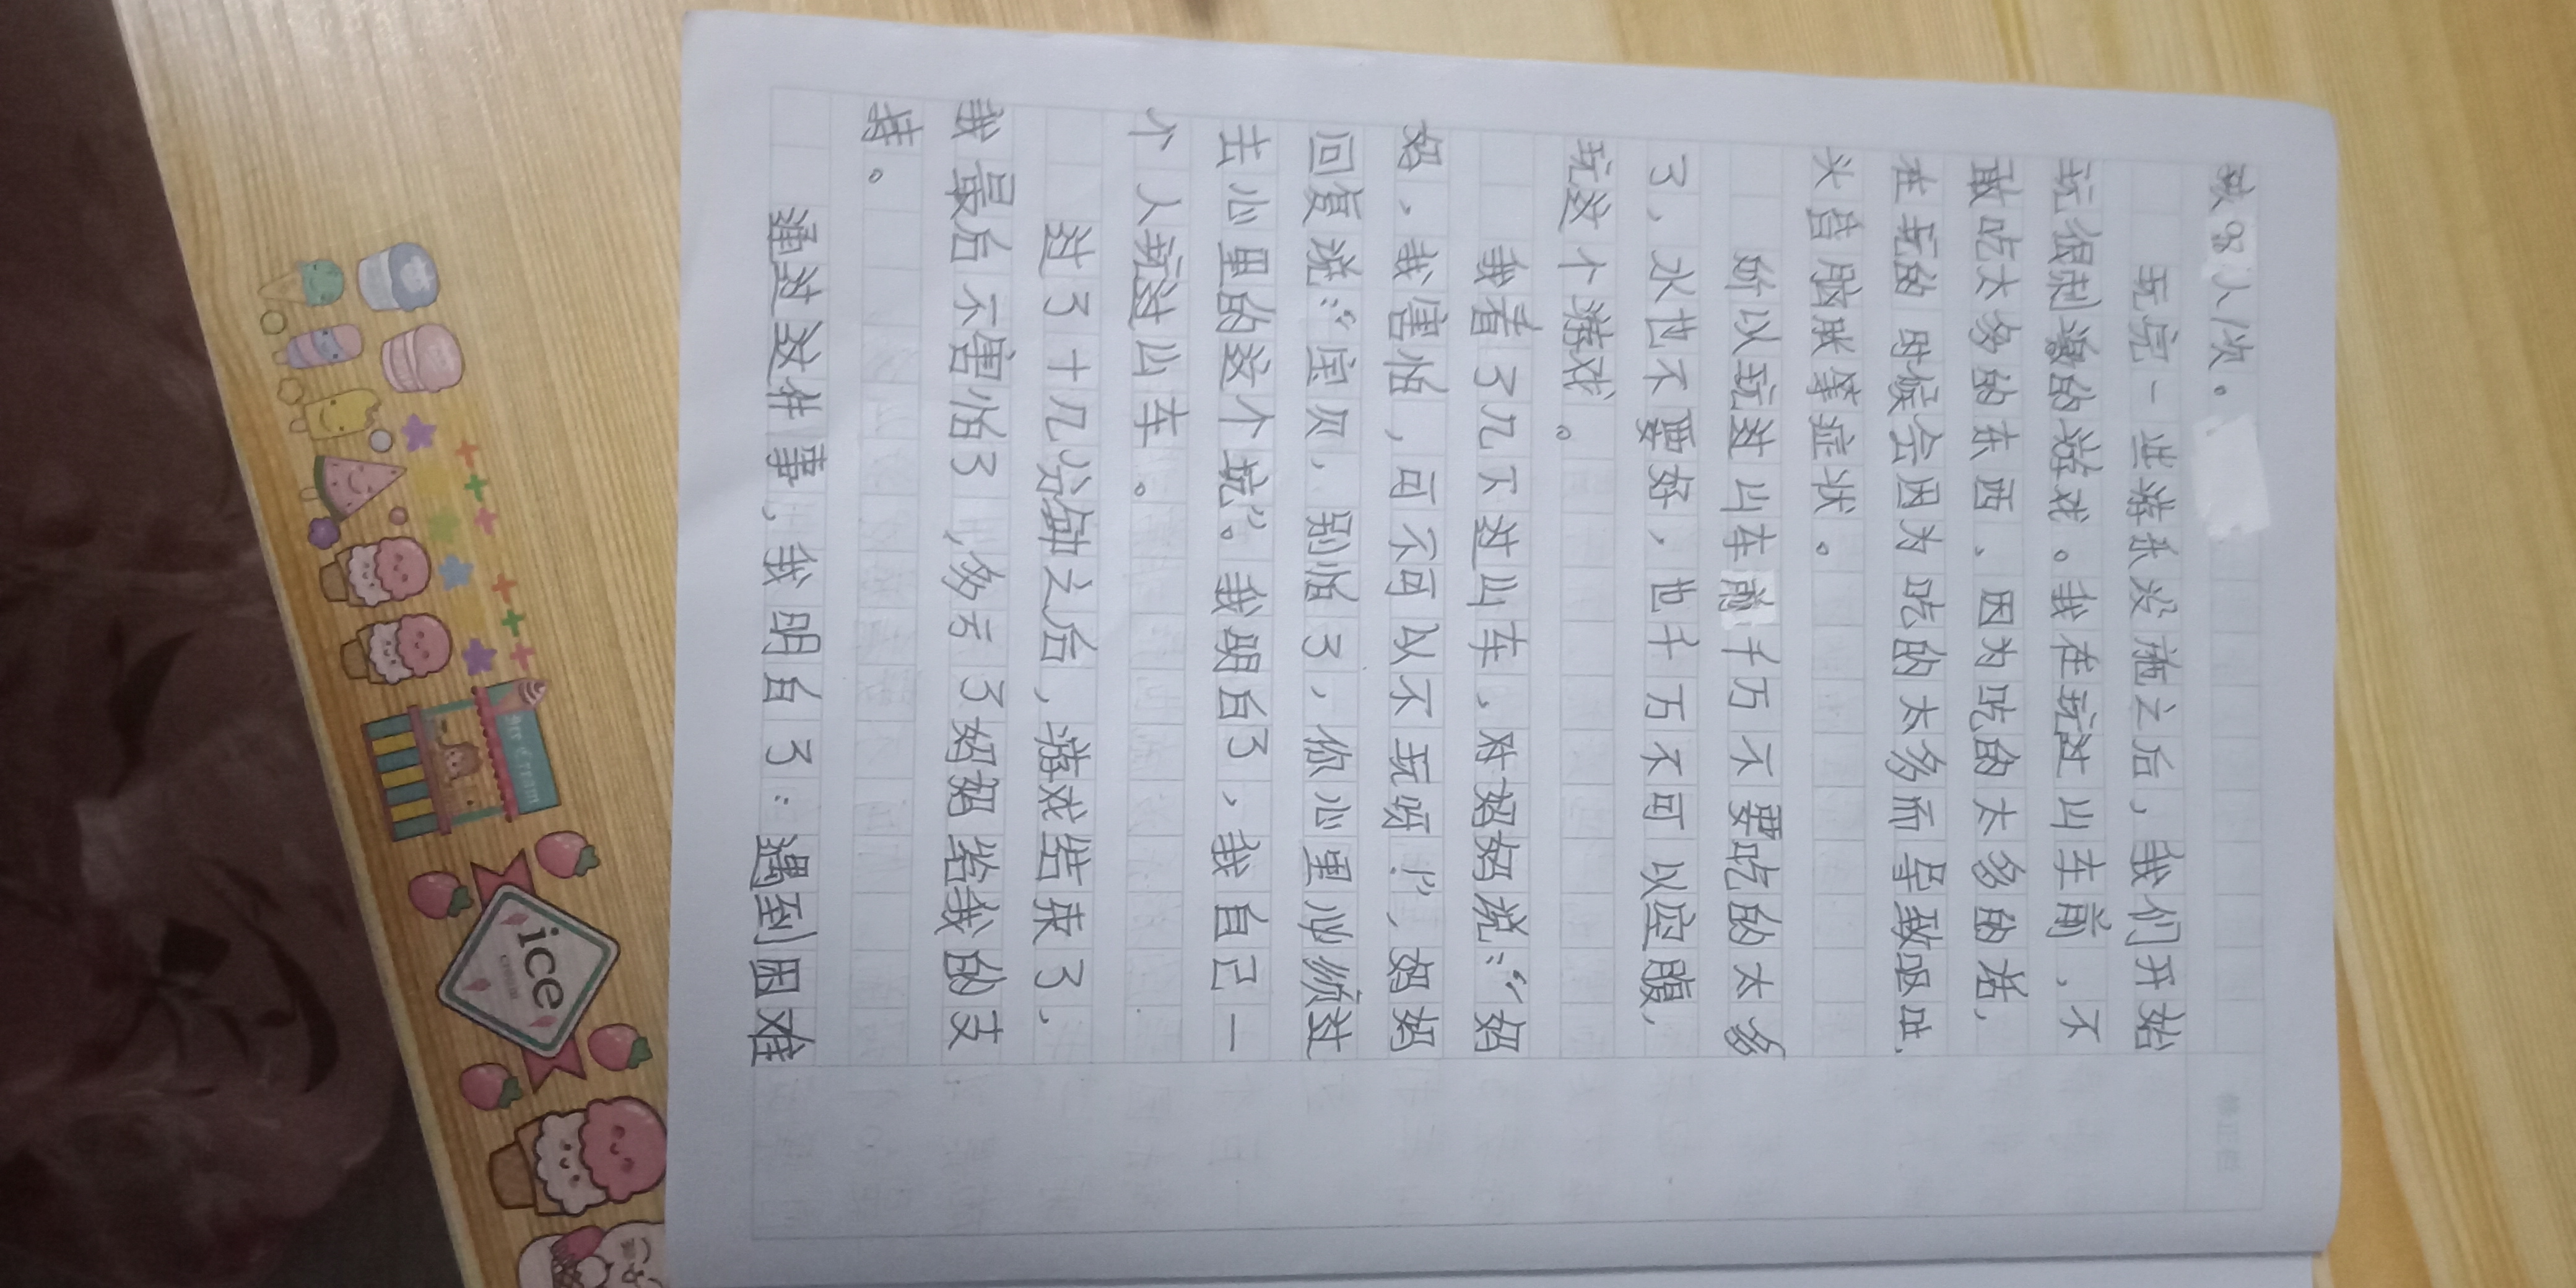 救98人/次。
玩完一些游乐设施之后，我们开始
玩很刺激的游戏。我在玩过山车前、不
敢吃太多的东西、因为吃的太多的话，
在玩的时候会因为吃的太多而导致呕吐、
头昏脑胀等症状。
所以玩过山车前千万不要吃的太多
了、水也不要好、也千万不可以空腹，
玩这个游戏。
我看了几下过山车、对妈妈说：“妈
妈、我害怕，可不可以不玩呀！”、妈妈
回复说：“宝贝，别怕了，你心里必须过
去心里的这个坑”。我明白了、我自己一
个人玩过山车。
过了十几分钟之后，游戏结束了、
我最后不害怕了，多亏了妈妈给我的支
持。
通过这件事，我明白了：遇到困难
ice cream
ice
cream